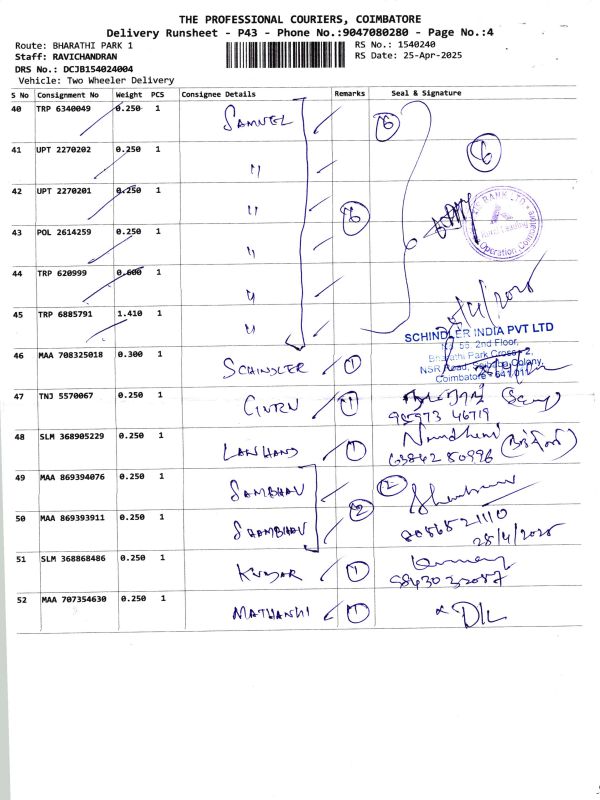 THE PROFESSIONAL COURIERS, COIMBATORE
Delivery Runsheet - P43 - Phone No.:9047080280 - Page No.:4
Route: BHARATHI PARK 1 RS No.: 1540240
Staff: RAVICHANDRAN RS Date: 25-Apr-2025
DRS No.: DCJB154024004
Vehicle: Two Wheeler Delivery
S No Consignment No Weight PCS Consignee Details Remarks Seal & Signature
40 TRP 6340049 0.250 1 SAMUEL 6
41 UPT 2270202 0.250 1 " 6
42 UPT 2270201 0.250 1 " 6
43 POL 2614259 0.250 1 "
Operation
44 TRP 620999 0.600 1 "
45 TRP 6885791 1.410 1 "
SCHINDLER INDIA PVT LTD
46 MAA 708325018 0.300 1 SCHINDLER 1
2nd Floor,
Bharathi Park Cross-2,
NSR Road, Saibaba Colony,
Coimbatore - 641 011
47 TNJ 5570067 0.250 1 1
48 SLM 368905229 0.250 1 1
63842 80996
49 MAA 869394076 0.250 1 SAMBHAV 2
50 MAA 869393911 0.250 1 SAAMBHAV 2
8056521110
28/4/2025
51 SLM 368868486 0.250 1 KUMAR 1
52 MAA 707354630 0.250 1 MATHANKI 1